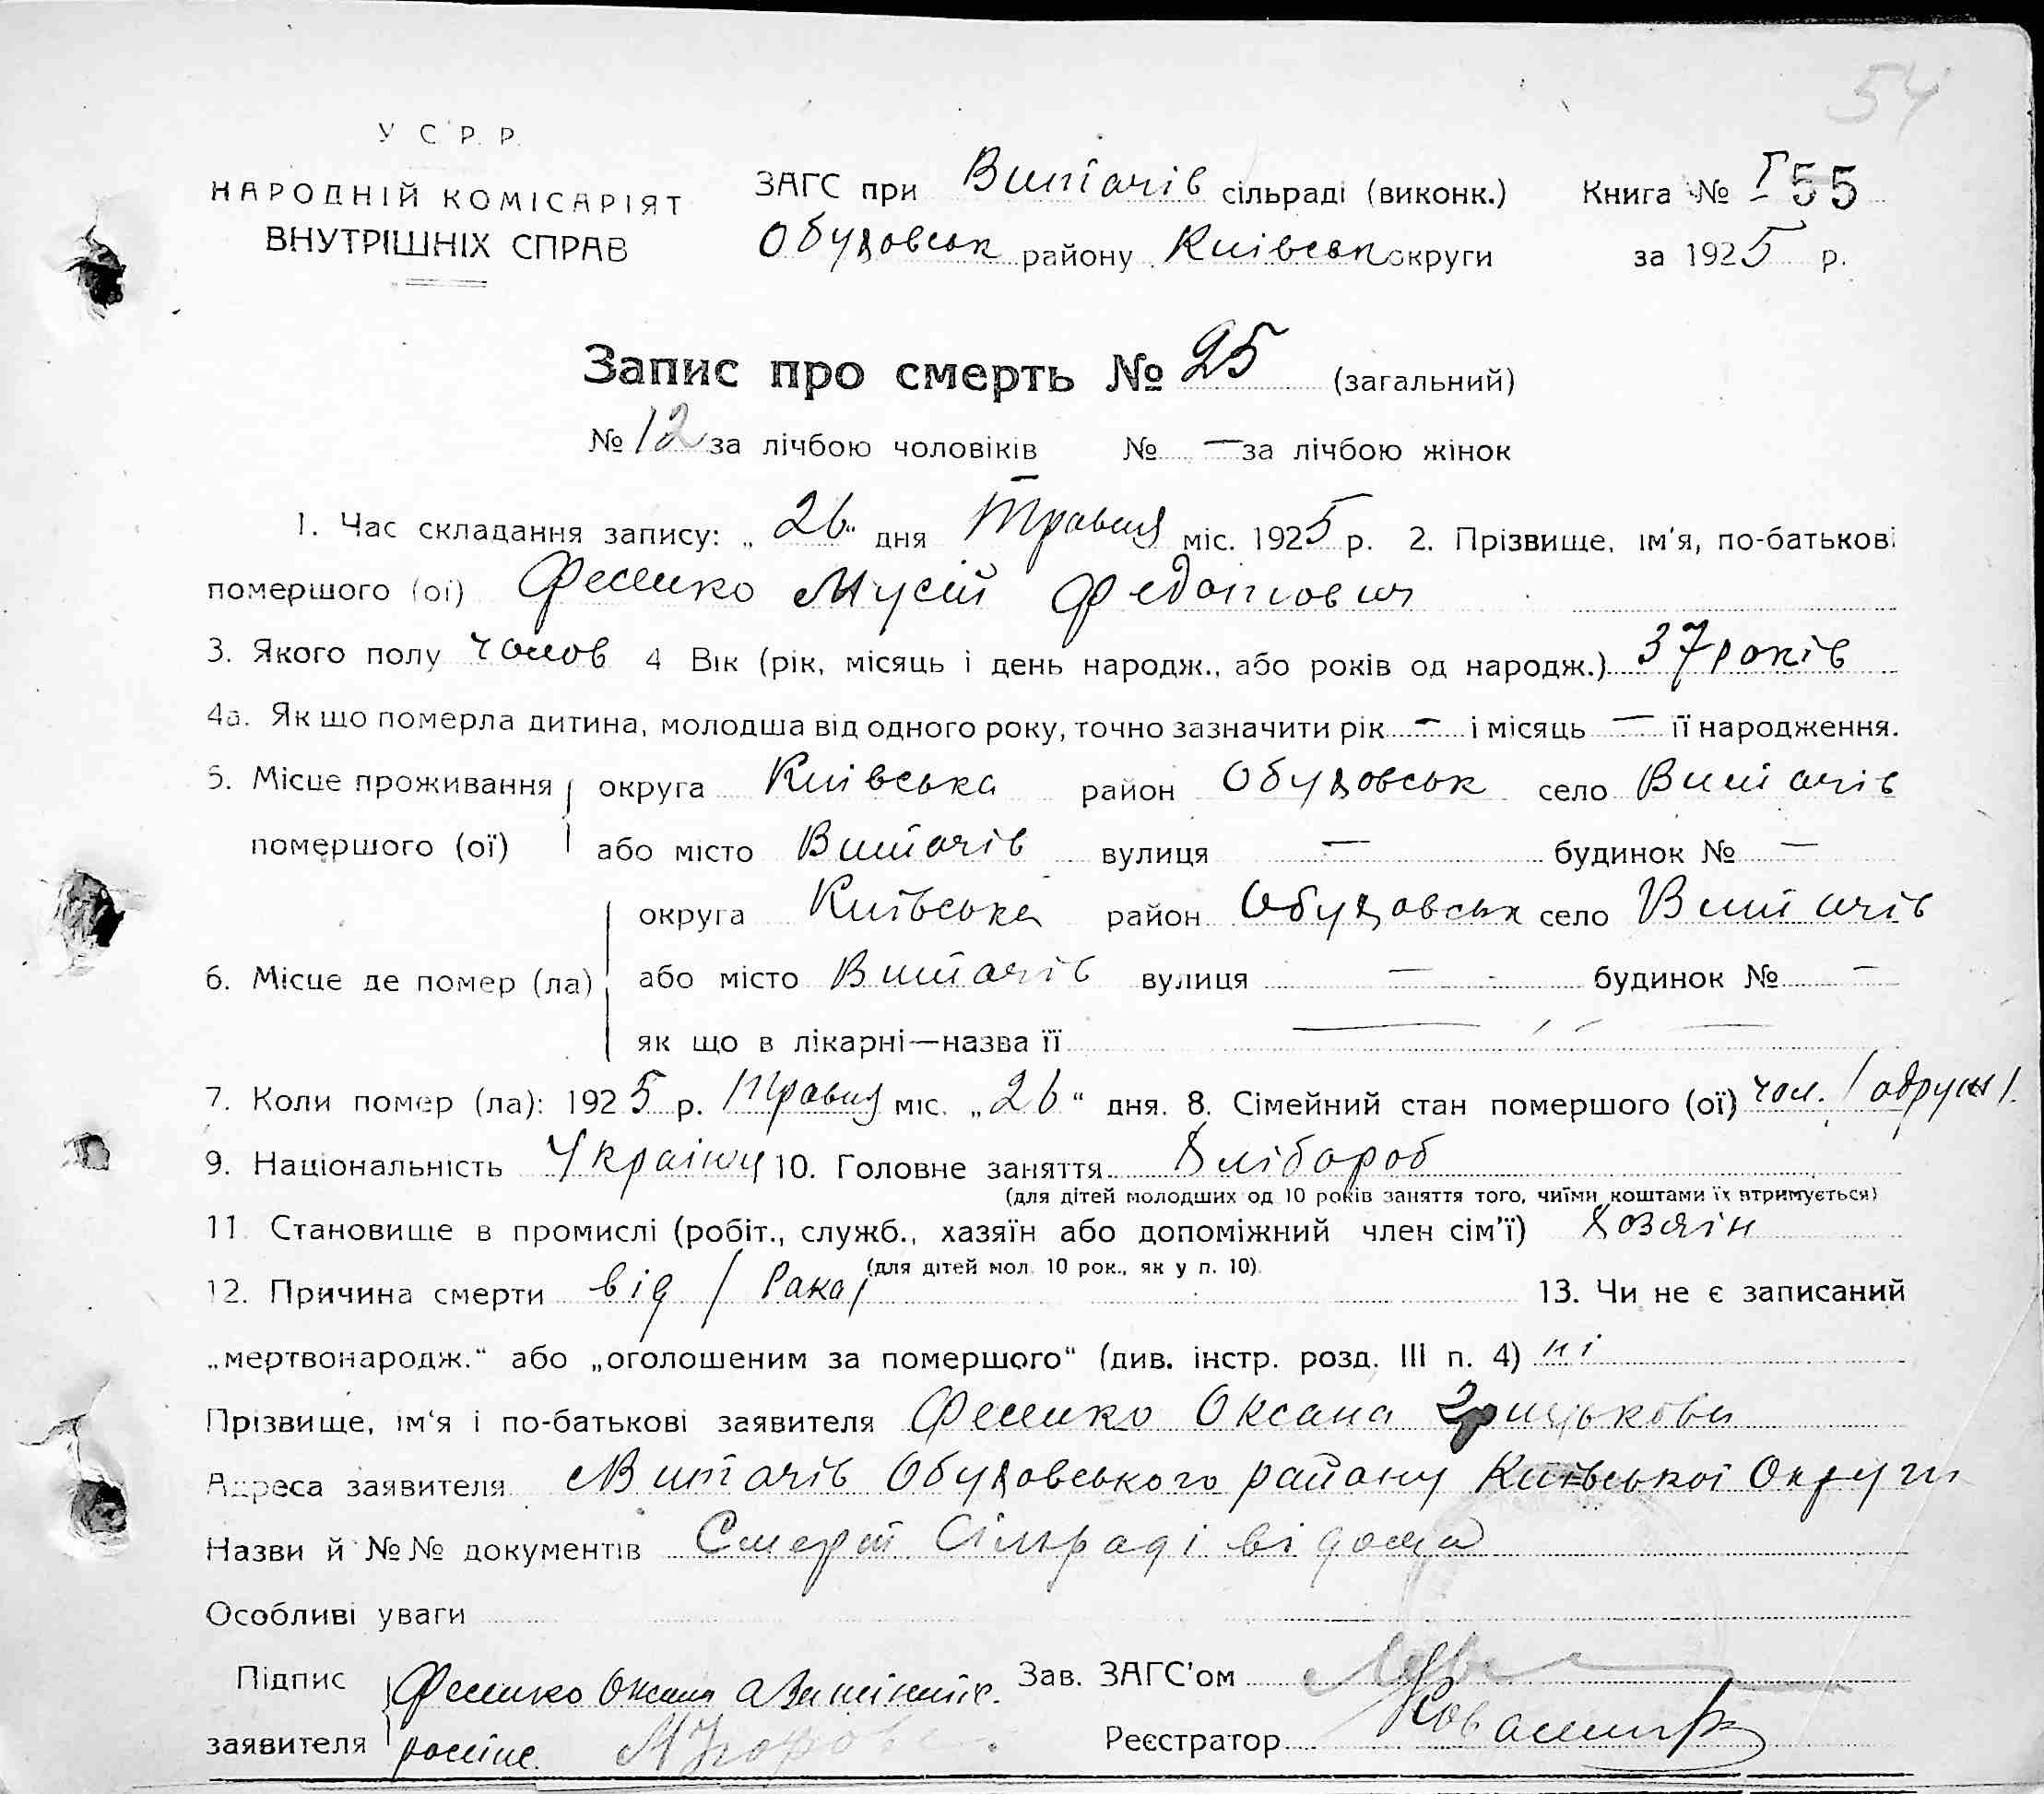 54
У С Р. Р.
НАРОДНІЙ КОМІСАРІЯТ
ВНУТРІШНІХ СПРАВ
ЗАГС при Витачів сільраді (виконк.)
Обуховськ району Київськ округи
Книга № I 55
за 1925 р.
Запис про смерть № 25 (загальний)
№ 12 за лічбою чоловіків № — за лічбою жінок
1. Час складання запису: „26“ дня Травня міс. 1925 р. 2. Прізвище, ім'я, по-батькові
помершого (ої) Фесенко Мусій Федотович
3. Якого полу чолов 4 Вік (рік, місяць і день народж., або років од народж.) 37 років
4а. Як що померла дитина, молодша від одного року, точно зазначити рік — і місяць — її народження.
5. Місце проживання округа Київська район Обуховськ село Витачів
помершого (ої) або місто Витачів вулиця — будинок № —
округа Київська район Обуховськ село Витачів
6. Місце де помер (ла) або місто Витачів вулиця — будинок № —
як що в лікарні—назва її
7. Коли помер (ла): 1925 р. Травня міс. „26“ дня. 8. Сімейний стан помершого (ої) чол. / одруж /.
9. Національність Україн 10. Головне заняття Хлібороб
(для дітей молодших од 10 років заняття того, чиїми коштами їх втримується)
11. Становище в промислі (робіт., служб., хазяїн або допоміжний член сім'ї) Хозяїн
(для дітей мол. 10 рок., як у п. 10).
12. Причина смерти від / Рака / 13. Чи не є записаний
„мертвонародж.“ або „оголошеним за помершого“ (див. інстр. розд. III п. 4) ні
Прізвище, ім'я і по-батькові заявителя Фесенко Оксана Грицькови
Адреса заявителя Витачів Обуховського району Київської Округи
Назви й №№ документів Смерть Сільраді відома
Особливі уваги
Підпис Фесенко Оксана Зав. ЗАГС'ом
заявителя Реєстратор